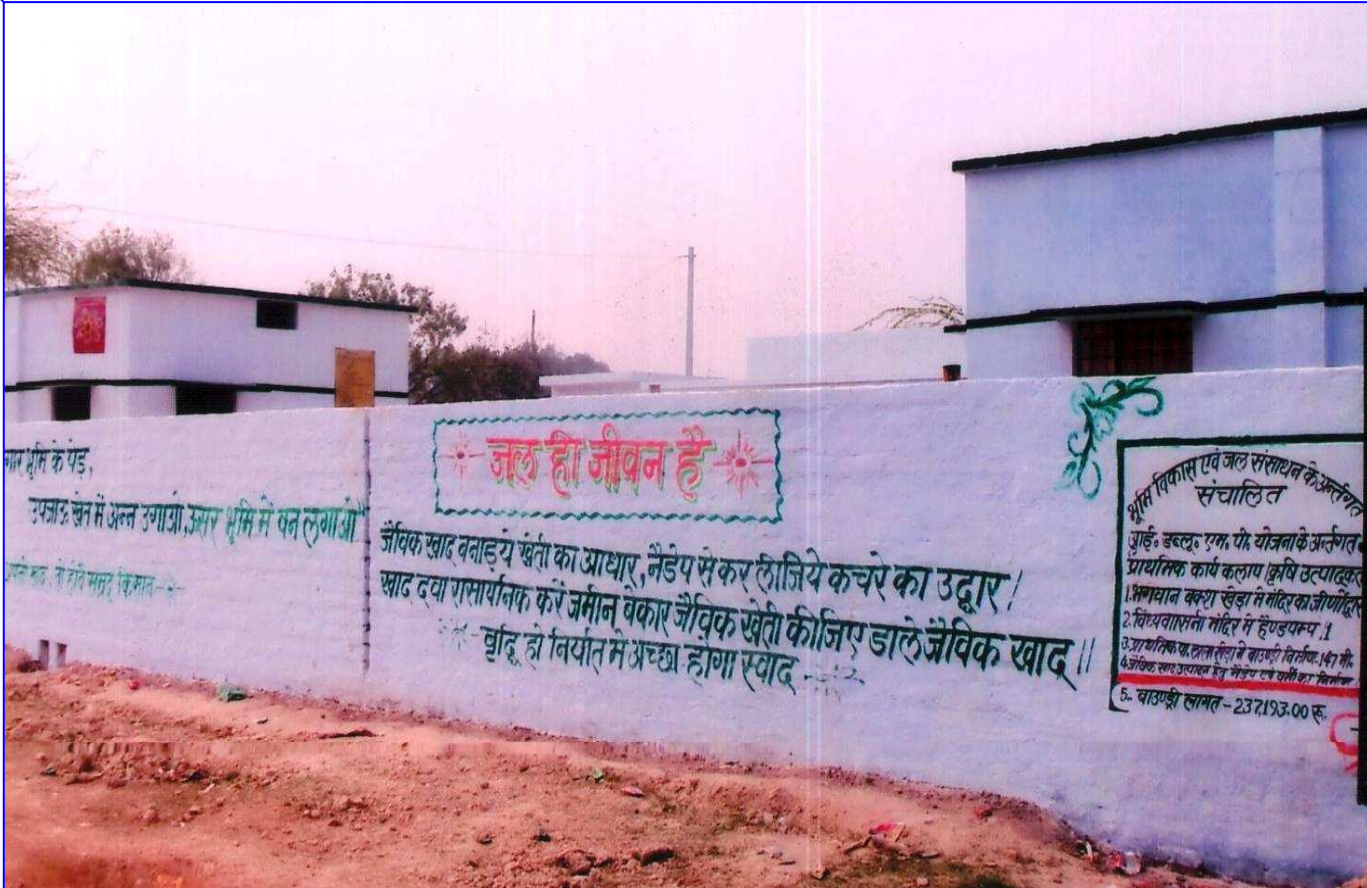 भूमि के पेड़,
उपजाऊ खेत में अन्न उगाओ, ऊसर भूमि में वन लगाओ"
जल ही जीवन है
जैविक खाद बनाइये खेती का आधार, नैडेप से कर लीजिये कचरे का उद्धार।
खाद दवा रासायनिक करें जमीन बेकार जैविक खेती कीजिए डाले जैविक खाद॥
वृद्धि हो निर्यात में अच्छा होगा स्वाद
भूमि विकास एवं जल संसाधन के अर्न्तगत
संचालित
आई॰ डब्लू॰ एम॰ पी॰ योजना के अर्न्तगत
प्राथमिक कार्य कलाप (कृषि उत्पादकर
1. भगवान बक्श खेड़ा में मंदिर का जीर्णोद्वार
2. विंध्यवासिनी मंदिर में हैण्डपम्प 1
3. प्राथमिक में बाउण्ड्री निर्माण 147 मी.
4. जैविक खाद उत्पादन हेतु नैडेप एवं वर्मी का निर्माण
5- बाउण्ड्री लागत - 237193.00 रू.